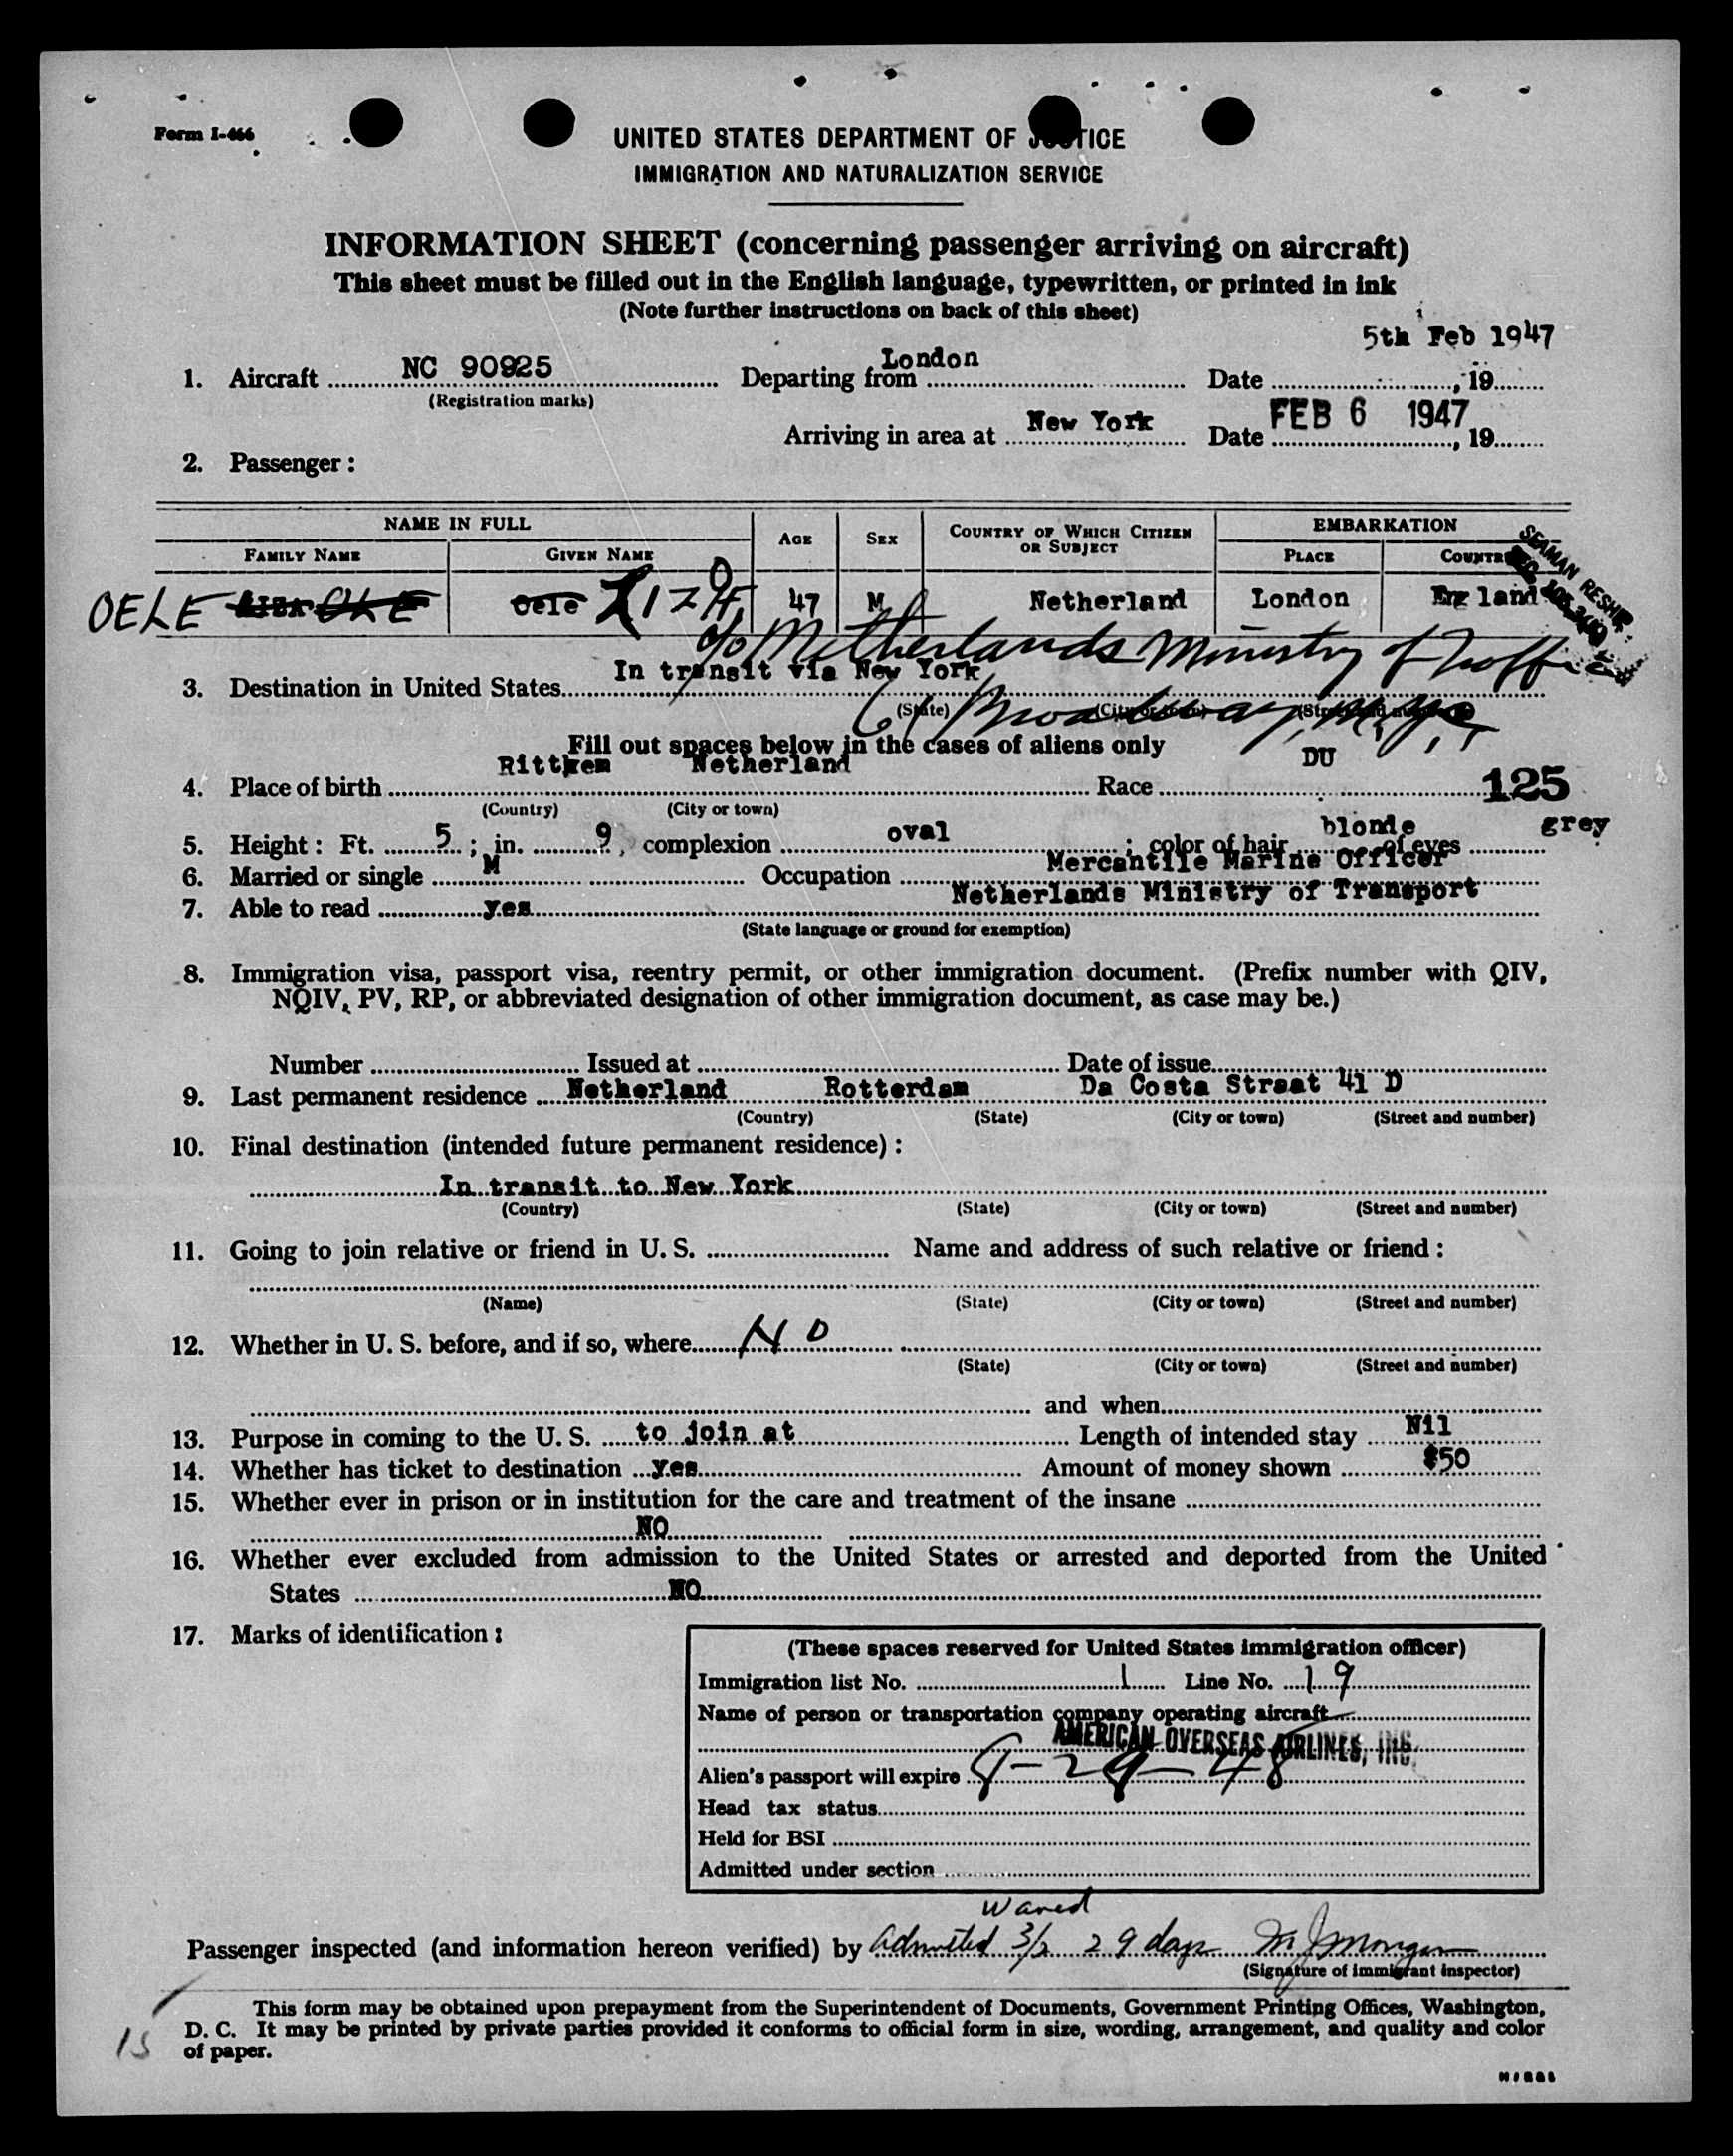 Form I-466
UNITED STATES DEPARTMENT OF JUSTICE
IMMIGRATION AND NATURALIZATION SERVICE
INFORMATION SHEET (concerning passenger arriving on aircraft)
This sheet must be filled out in the English language, typewritten, or printed in ink
(Note further instructions on back of this sheet)
5th Feb 1947
1. Aircraft NC 90925 Departing from London Date , 19
(Registration marks)
Arriving in area at New York Date FEB 6 1947 , 19
2. Passenger :
NAME IN FULL AGE SEX COUNTRY OF WHICH CITIZEN OR SUBJECT EMBARKATION
FAMILY NAME GIVEN NAME PLACE COUNTRY
SEAMAN RESHIP.
OELE OLE Oele 47 M Netherland London England
c/o Netherlands Ministry of
3. Destination in United States In transit via New York
(State) (City or town) (Street and number)
Broadway, N.Y.
Fill out spaces below in the cases of aliens only
4. Place of birth Ritthem Netherland Race DU 125
(Country) (City or town)
5. Height : Ft. 5 ; in. 9 , complexion oval ; color of hair blonde of eyes grey
6. Married or single M Occupation Mercantile Marine Officer
7. Able to read yes Netherlands Ministry of Transport
(State language or ground for exemption)
8. Immigration visa, passport visa, reentry permit, or other immigration document. (Prefix number with QIV,
NQIV, PV, RP, or abbreviated designation of other immigration document, as case may be.)
Number Issued at Date of issue
9. Last permanent residence Netherland Rotterdam Da Costa Straat 41 D
(Country) (State) (City or town) (Street and number)
10. Final destination (intended future permanent residence) :
In transit to New York
(Country) (State) (City or town) (Street and number)
11. Going to join relative or friend in U. S. Name and address of such relative or friend :
(Name) (State) (City or town) (Street and number)
12. Whether in U. S. before, and if so, where NO
(State) (City or town) (Street and number)
and when
13. Purpose in coming to the U. S. to join at Length of intended stay Nil
14. Whether has ticket to destination yes Amount of money shown $50
15. Whether ever in prison or in institution for the care and treatment of the insane
NO
16. Whether ever excluded from admission to the United States or arrested and deported from the United
States NO
17. Marks of identification :
(These spaces reserved for United States immigration officer)
Immigration list No. 1 Line No. 19
Name of person or transportation company operating aircraft
AMERICAN OVERSEAS AIRLINES, INC.
Alien's passport will expire 9-29-48
Head tax status
Held for BSI
Admitted under section
Waved
Passenger inspected (and information hereon verified) by Admitted 3/2 29 days
(Signature of immigrant inspector)
This form may be obtained upon prepayment from the Superintendent of Documents, Government Printing Offices, Washington,
D. C. It may be printed by private parties provided it conforms to official form in size, wording, arrangement, and quality and color
of paper.
15